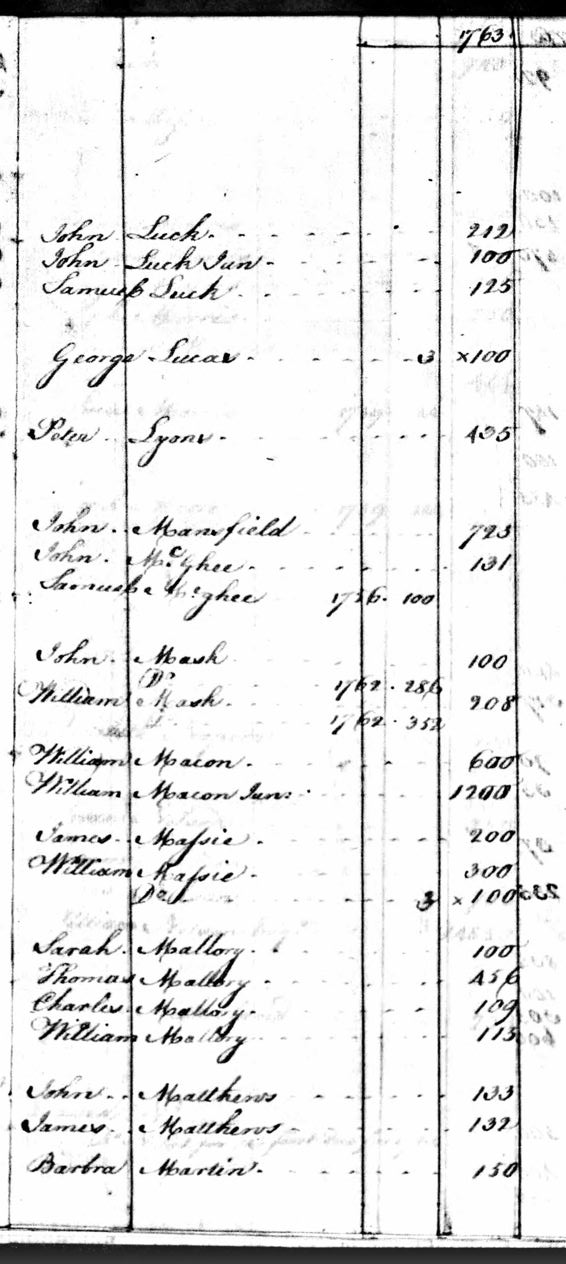 1763
John Luck - 212
John Luck Jun - 100
Samuel Luck 125
George Lucas - 3 ×100
Peter Lyons - 435
John Mansfield 723
John McGhee - 131
Samuel McGhee 1756 - 100
John Mash 100
Do 1762 - 286
William Mash 208
1762 - 352
William Macon - 600
William Macon Jun: 1200
James Massie - 200
William Massie 300
Do 3 ×100
Sarah Mallory - 100
Thomas Mallory - 456
Charles Mallory - 109
William Mallory 113
John Matthews 133
James Matthews - 132
Barbra Martin - 150